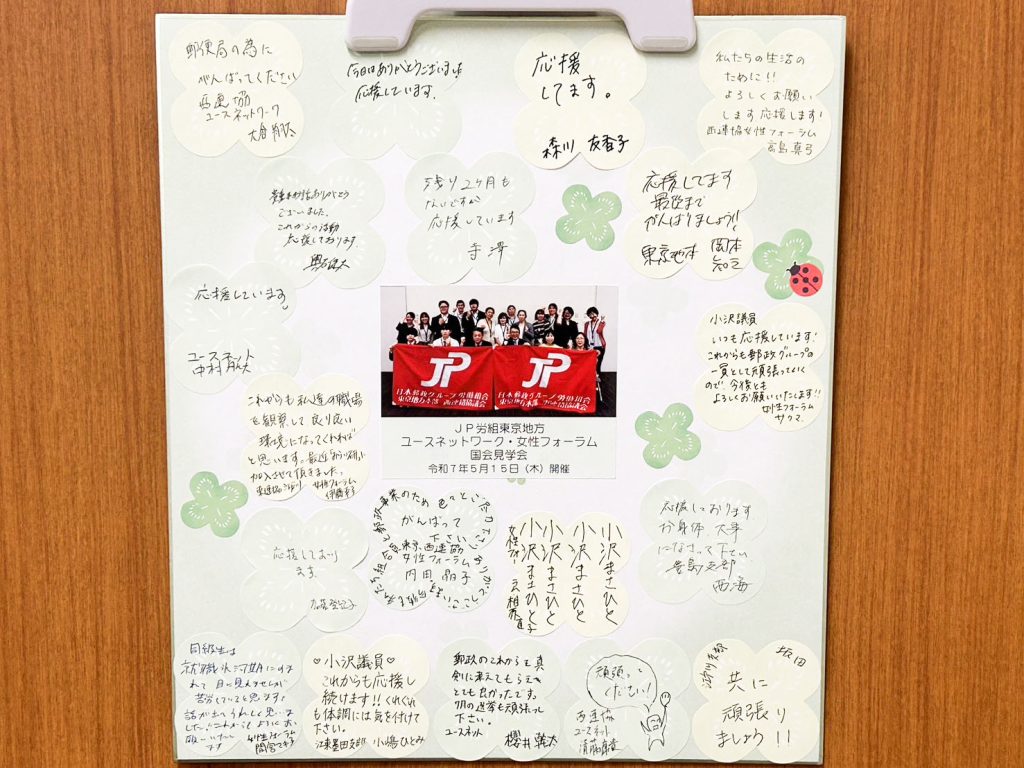 郵便局の為に
がんばってください
ユースネットワーク
今日はありがとうございました
応援しています。
応援
してます。
森川 友香子
私たちの生活の
ために!!
よろしくお願い
します応援します!
西連協女性フォーラム
高島真弓
ございました。
これからの活動
応援しております。
残り2ヶ月も
ないですが
応援しています
寺澤
応援してます
最後まで
がんばりましょう!!
東京地本 岡本
応援しています
ユースネット
中村
小沢議員
いつも応援しています!
これからも郵政グループの
一員として頑張っていく
ので、今後とも
よろしくお願いいたします!!
女性フォーラム
サクマ
JP
JP
日本郵政グループ労働組合
東京地方本部 西連絡協議会
日本郵政グループ労働組合
東京地方本部 西連絡協議会
JP労組東京地方
ユースネットワーク・女性フォーラム
国会見学会
令和7年5月15日(木)開催
これからも私達の職場
を観察して良り良い
環境になってくれれば
と思います。
加入させて頂きました。
女性フォーラム
伊藤幸子
応援しており
ます。
がんばって
下さい
東京、西連協
女性フォーラム
内田 晶子
小沢まさひと
小沢まさひと
小沢まさひと
小沢まさひと
女性フォーラム 相原直子
応援しております
お身体、大事
になさって下さい
豊島支部
西海
同級生は
就職氷河期にのま
れて目に見えませんが
苦労していると思います。
話が出てうれしく思いま
した。これからもよろしくお
願いいたし
ます
女性フォーラム
♡小沢議員♡
これからも応援し
続けます!!くれぐれ
も体調には気を付けて
下さい。
江東墨田支部 小嶋ひとみ
郵政のこれからを真
剣に考えてもらえて
とても良かったです。
7月の選挙も頑張って
下さい。
ユースネット
櫻井
頑張って
ください!
西連協
ユースネット
江戸川支部
坂田
共に
頑張り
ましょう!!